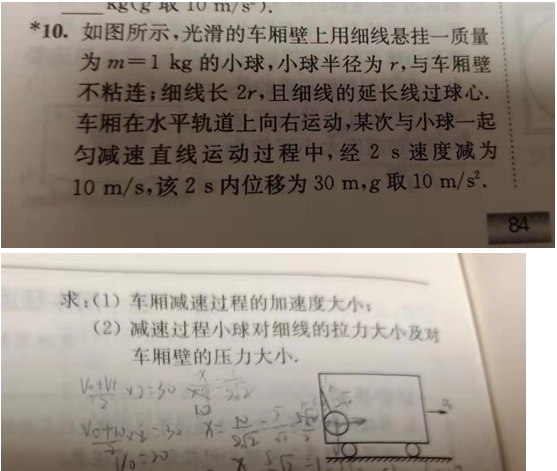 kg(g 取 10 m/s²).
*10. 如图所示,光滑的车厢壁上用细线悬挂一质量
为 m=1 kg 的小球,小球半径为 r,与车厢壁
不粘连;细线长 2r,且细线的延长线过球心.
车厢在水平轨道上向右运动,某次与小球一起
匀减速直线运动过程中,经 2 s 速度减为
10 m/s,该 2 s 内位移为 30 m,g 取 10 m/s².
84
求:(1) 车厢减速过程的加速度大小;
(2) 减速过程小球对细线的拉力大小及对
车厢壁的压力大小.
V₀+V₁/2 ×2=30
V₀+10/2 ×2=30
V₀=20